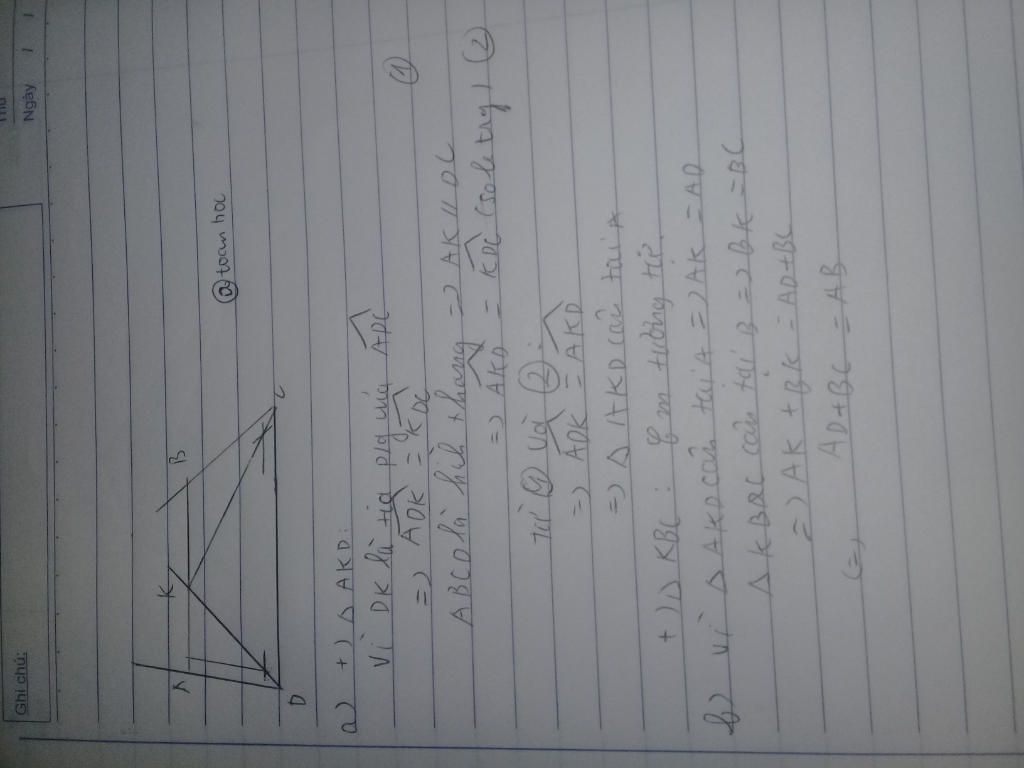 Ghi chú:
Thứ
Ngày / /
@toanhoc
A K B
D C
a) +) Δ AKD:
Vì DK là tia p/g của ADC
=> ADK = KDC (1)
ABCD là hình thang => AK // DC
=> AKD = KDC (sole try) (2)
Từ (1) và (2):
=> ADK = AKD
=> Δ AKD cân tại A
+) Δ KBC: tương tự.
b) Vì Δ AKD cân tại A => AK = AD
Δ KBC cân tại B => BK = BC
=> AK + BK = AD + BC
(=) AD + BC = AB